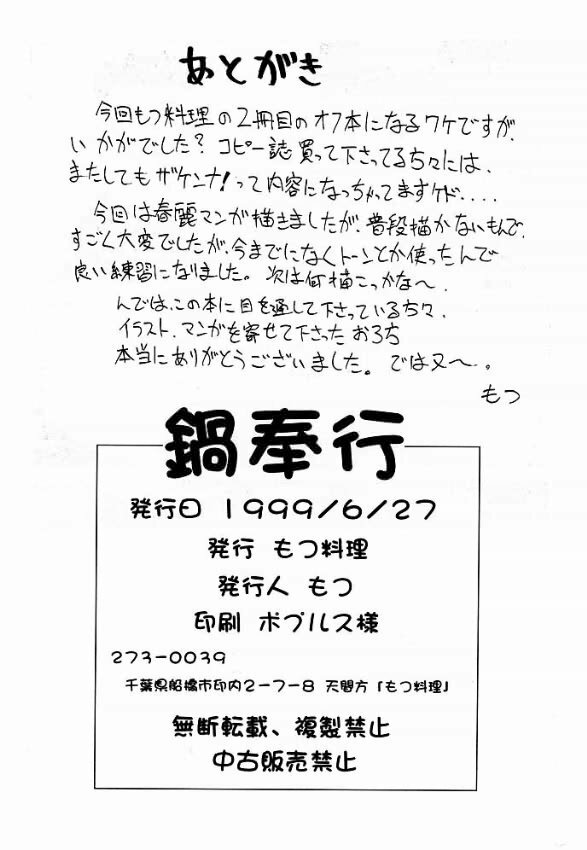 あとがき
今回もつ料理の2冊目のオフ本になるワケですが、
いかがでした？ コピー誌買って下さってる方々には、
またしてもザケンナ！って内容になっちゃってますケド....
今回は春麗マンガ描きましたが、普段描かないもんで、
すごく大変でしたが、今までになくトーンとか使ったんで
良い練習になりました。次は何描こっかな〜
んでは、この本に目を通して下さっている方々、
イラスト、マンガを寄せて下さったおろち
本当にありがとうございました。では又〜。
もつ
鍋奉行
発行日 1999/6/27
発行 もつ料理
発行人 もつ
印刷 ポプルス様
273-0039
千葉県船橋市印内2-7-8 天間方「もつ料理」
無断転載、複製禁止
中古販売禁止